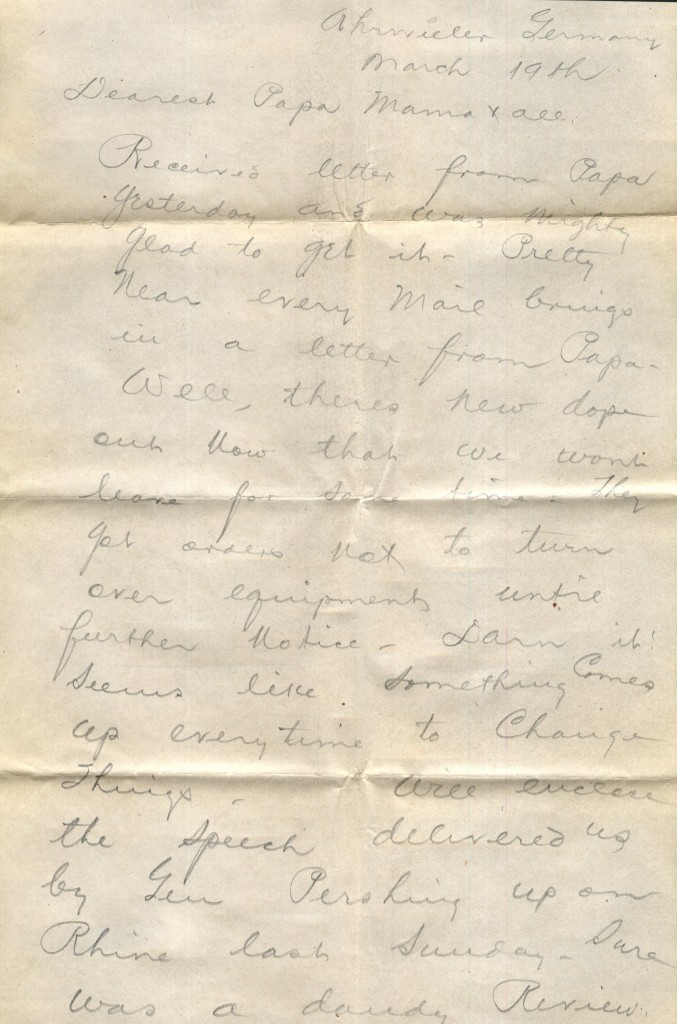 Ahrwieler Germany
March 19th
Dearest Papa Mama & all.
Received letter from Papa
Yesterday and was Mighty
glad to get it - Pretty
Near every Mail brings
in a letter from Papa -
Well, theres New dope
out Now that we wont
leave for some time - They
got orders Not to turn
over equipment until
further Notice - Darn it!
Seems like something Comes
up everytime to Change
Things. Will enclose
the speech delivered us
by Gen Pershing up on
Rhine last Sunday - Sure
was a dandy Review.